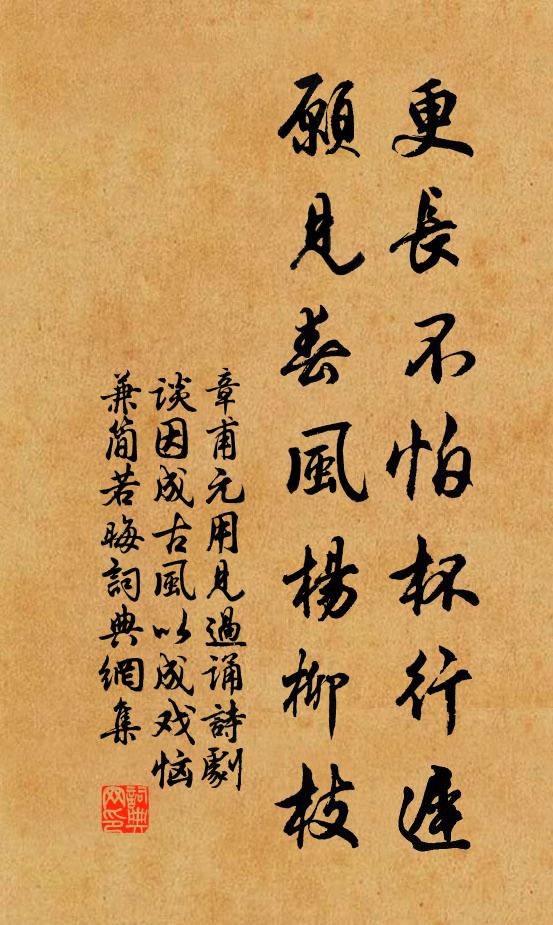 更長不怕杯行遲
願見春風楊柳枝
章甫元用見過誦詩劇
談因成古風以成戏恼
兼简若晦詞典網集
詞典网印